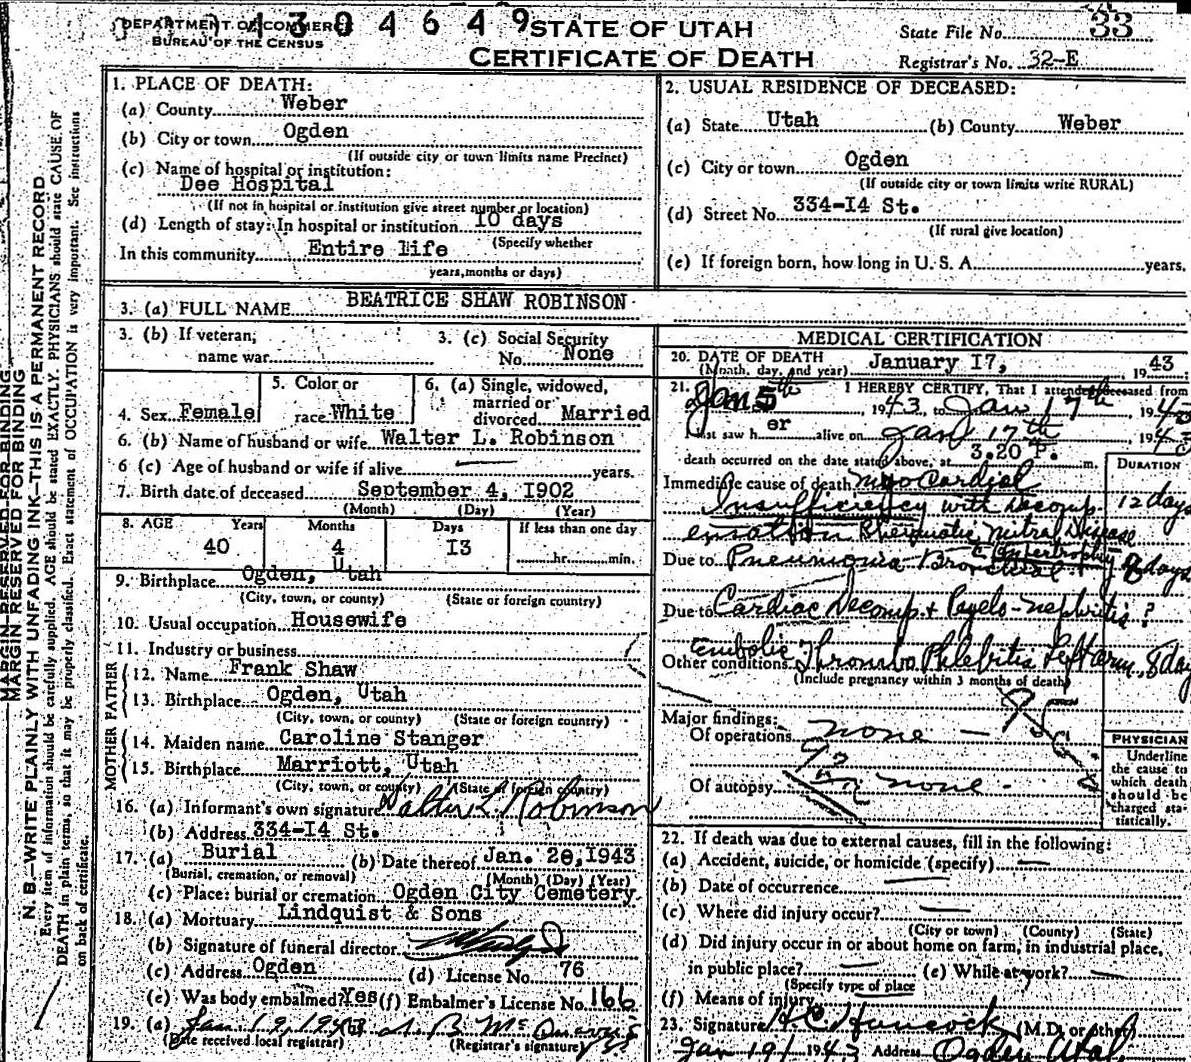 DEPARTMENT OF COMMERCE
BUREAU OF THE CENSUS
1304649
STATE OF UTAH
CERTIFICATE OF DEATH
State File No. 33
Registrar's No. 32-E
MARGIN RESERVED FOR BINDING
MARGIN RESERVED FOR BINDING
N. B.—WRITE PLAINLY WITH UNFADING INK—THIS IS A PERMANENT RECORD
Every item of information should be carefully supplied. AGE should be stated EXACTLY. PHYSICIANS should state CAUSE OF
DEATH in plain terms, so that it may be properly classified. Exact statement of OCCUPATION is very important. See instructions
on back of certificate.
1. PLACE OF DEATH:
(a) County Weber
(b) City or town Ogden
(If outside city or town limits name Precinct)
(c) Name of hospital or institution:
Dee Hospital
(If not in hospital or institution give street number or location)
(d) Length of stay: In hospital or institution 10 days
(Specify whether
In this community Entire life
years, months or days)
2. USUAL RESIDENCE OF DECEASED:
(a) State Utah (b) County Weber
(c) City or town Ogden
(If outside city or town limits write RURAL)
(d) Street No. 334-14 St.
(If rural give location)
(e) If foreign born, how long in U. S. A. years.
3. (a) FULL NAME BEATRICE SHAW ROBINSON
3. (b) If veteran, name war
3. (c) Social Security No. None
4. Sex Female
5. Color or race White
6. (a) Single, widowed, married or divorced Married
6. (b) Name of husband or wife Walter L. Robinson
6 (c) Age of husband or wife if alive years.
7. Birth date of deceased September 4, 1902
(Month) (Day) (Year)
8. AGE Years Months Days If less than one day
40 4 13 hr. min.
9. Birthplace Ogden, Utah
(City, town, or county) (State or foreign country)
10. Usual occupation Housewife
11. Industry or business
FATHER
12. Name Frank Shaw
13. Birthplace Ogden, Utah
(City, town, or county) (State or foreign country)
MOTHER
14. Maiden name Caroline Stanger
15. Birthplace Marriott, Utah
(City, town, or county) (State or foreign country)
16. (a) Informant's own signature Walter L. Robinson
(b) Address 334-14 St.
17. (a) Burial (b) Date thereof Jan. 20, 1943
(Burial, cremation, or removal) (Month) (Day) (Year)
(c) Place: burial or cremation Ogden City Cemetery
18. (a) Mortuary Lindquist & Sons
(b) Signature of funeral director
(c) Address Ogden (d) License No. 76
(e) Was body embalmed? Yes (f) Embalmer's License No. 166
19. (a) Jan 19, 1943
(Date received local registrar) (Registrar's signature)
MEDICAL CERTIFICATION
20. DATE OF DEATH January 17, 1943
(Month, day, and year)
21. I HEREBY CERTIFY, That I attended deceased from
Jan 5th, 1943, to Jan 17th, 1943
I last saw her alive on Jan 17th, 1943
death occurred on the date stated above, at 3.20 P. m.
DURATION
Immediate cause of death Myocardial
Insufficiency with Decomp- 12 days
ensation Rheumatic Mitral Disease
& Hypertrophy
Due to Pneumonia Bronchial 8 days
Due to Cardiac Decomp + Pyelo-nephritis ?
Embolic
Other conditions Thrombo Phlebitis Left arm, 8 day
(Include pregnancy within 3 months of death)
Major findings:
Of operations none —
Of autopsy none.
PHYSICIAN
Underline
the cause to
which death
should be
charged sta-
tistically.
22. If death was due to external causes, fill in the following:
(a) Accident, suicide, or homicide (specify)
(b) Date of occurrence
(c) Where did injury occur?
(City or town) (County) (State)
(d) Did injury occur in or about home on farm, in industrial place,
in public place? (e) While at work?
(Specify type of place
(f) Means of injury
23. Signature H.C. Hancock (M.D. or other)
Jan 19, 1943 Address Ogden Utah